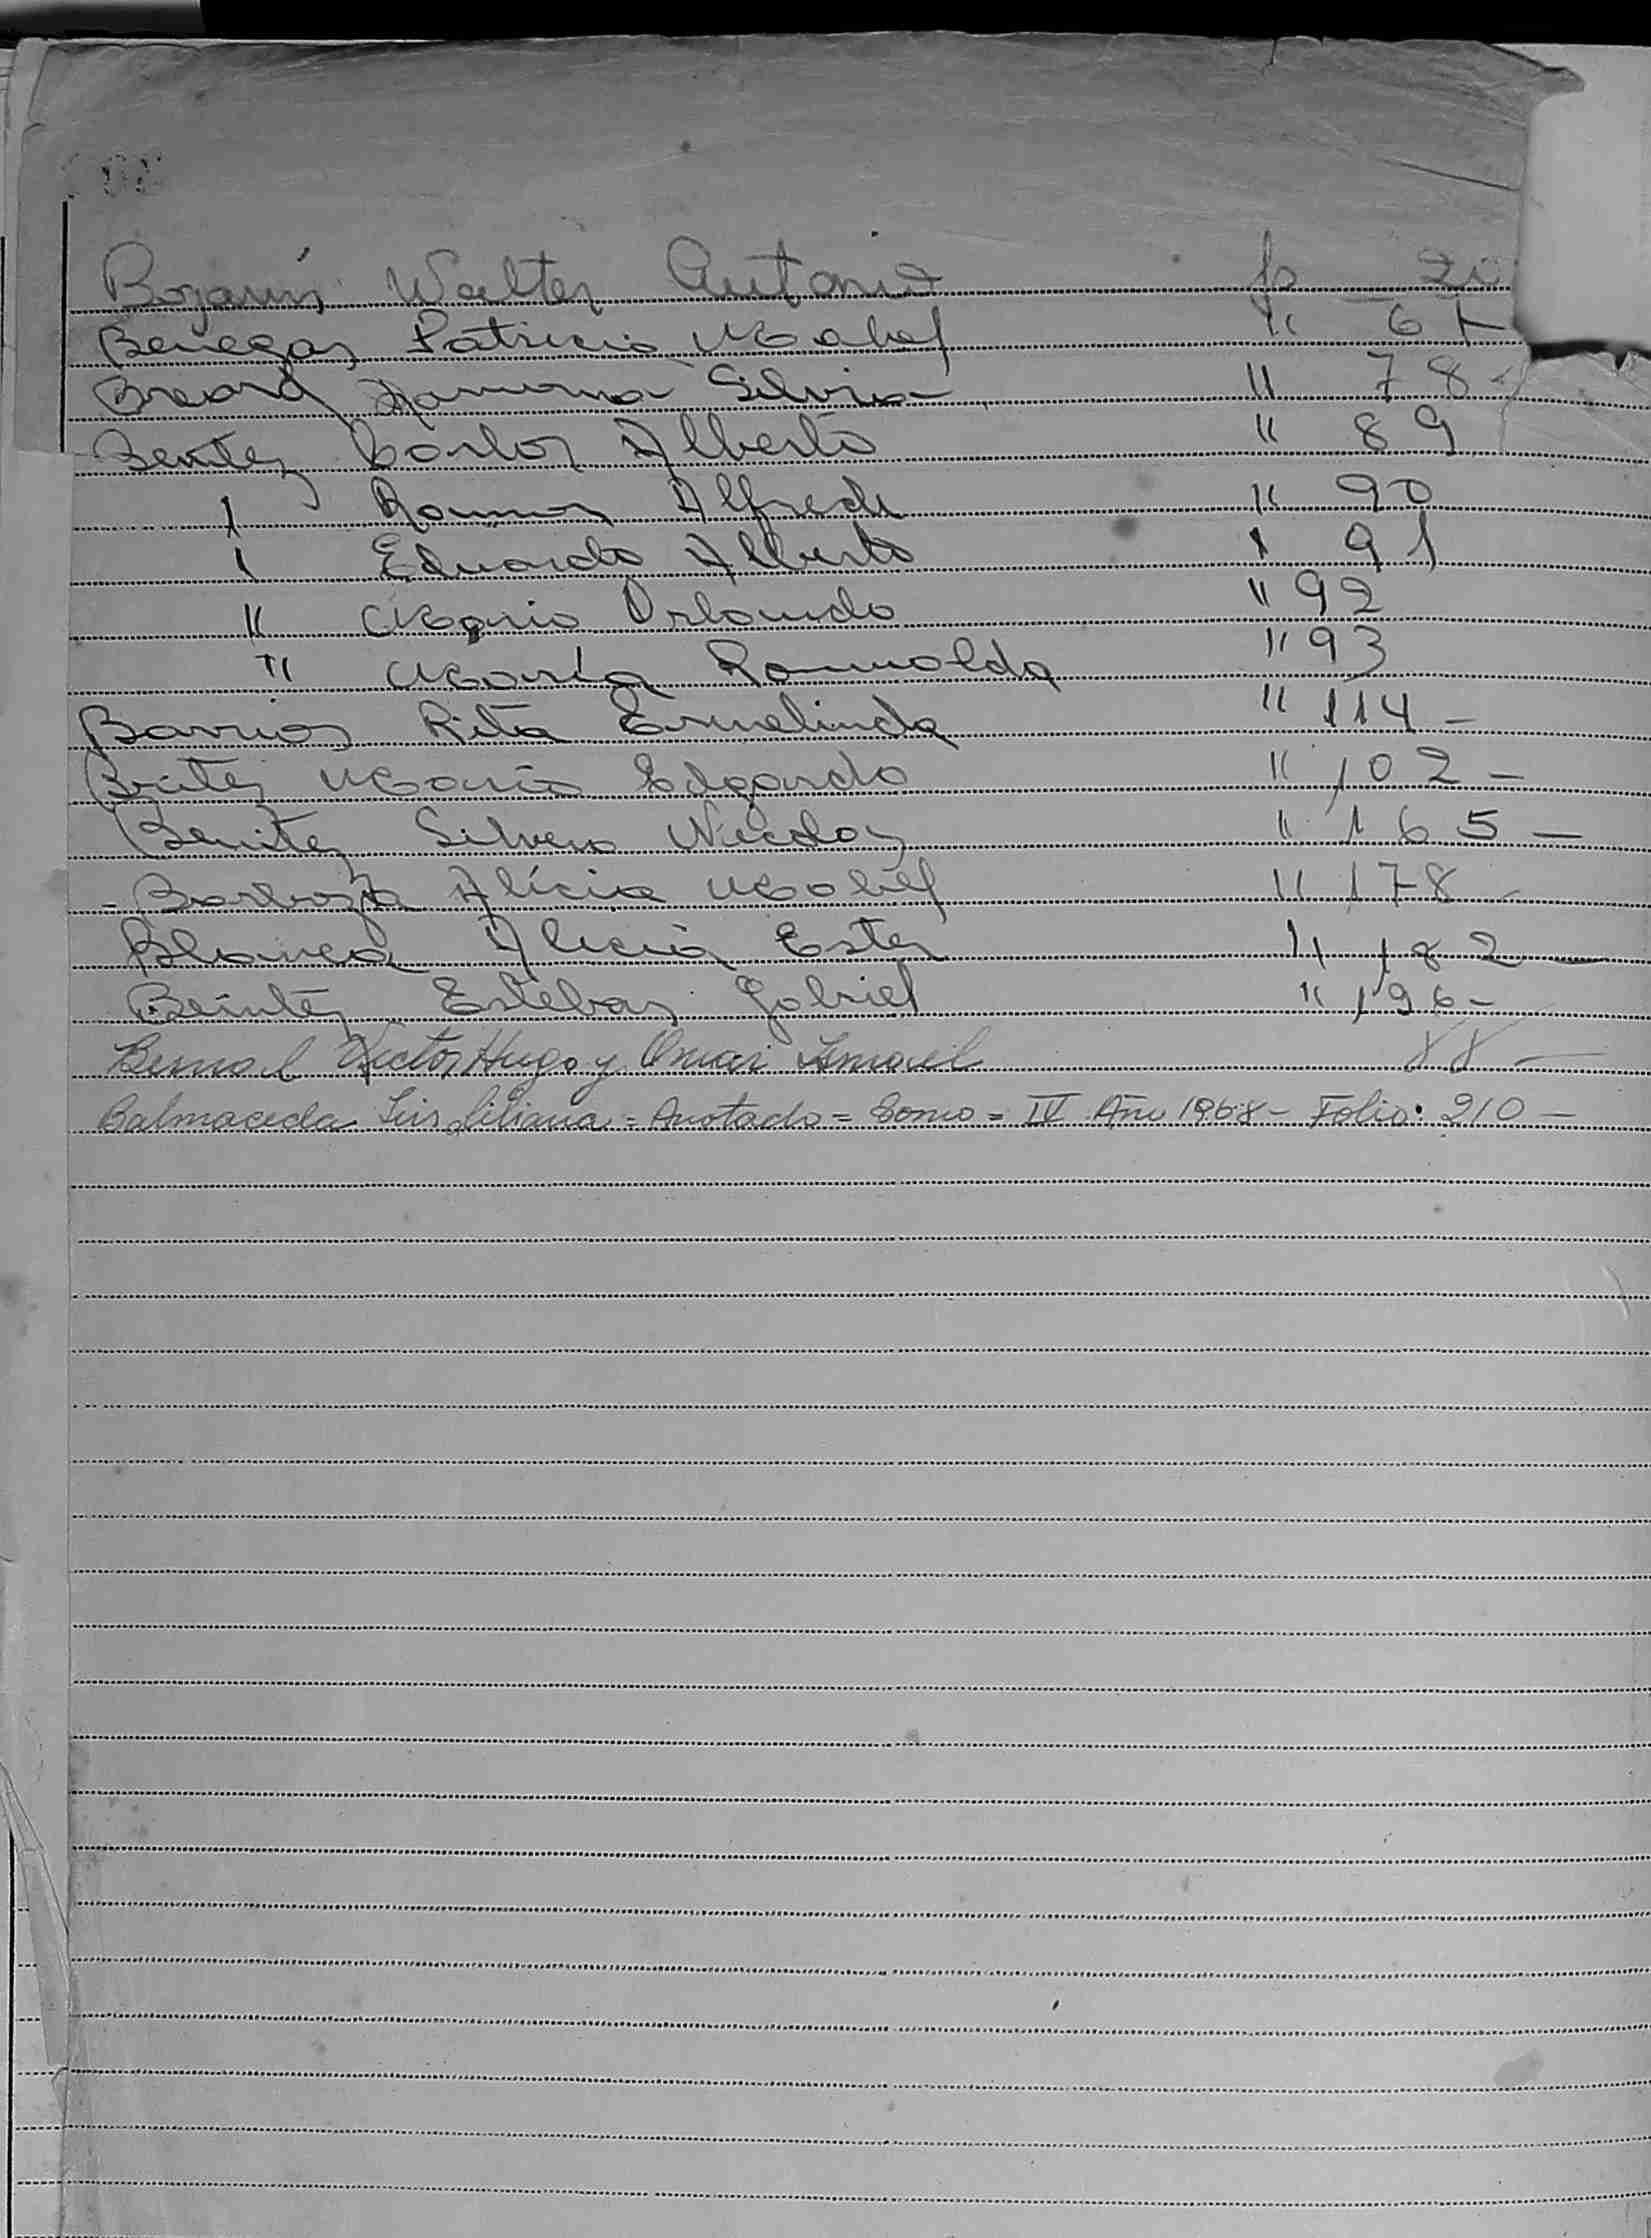 Bojarin Walter Antonio fs 20
Benegas Patricia Mabel " 67
Breard Ramona Silvia " 78
Benitez Carlos Alberto " 89
" Ramon Alfredo " 90
" Eduardo Alberto " 91
" Mario Orlando " 92
" María Romualda " 93
Barrios Rita Ermelinda " 114 -
Britez Mario Edgardo " 102 -
Benitez Silverio Nicolas " 165 -
- Barboza Alicia Mabel " 178 -
Blanca Alicia Ester " 182 -
Benitez Esteban Gabriel " 196 -
Bernal Victor Hugo y Omar Ismael 88 -
Balmaceda Luis Liliana = Anotado = Tomo = IV Año 1968 - Folio: 210 -